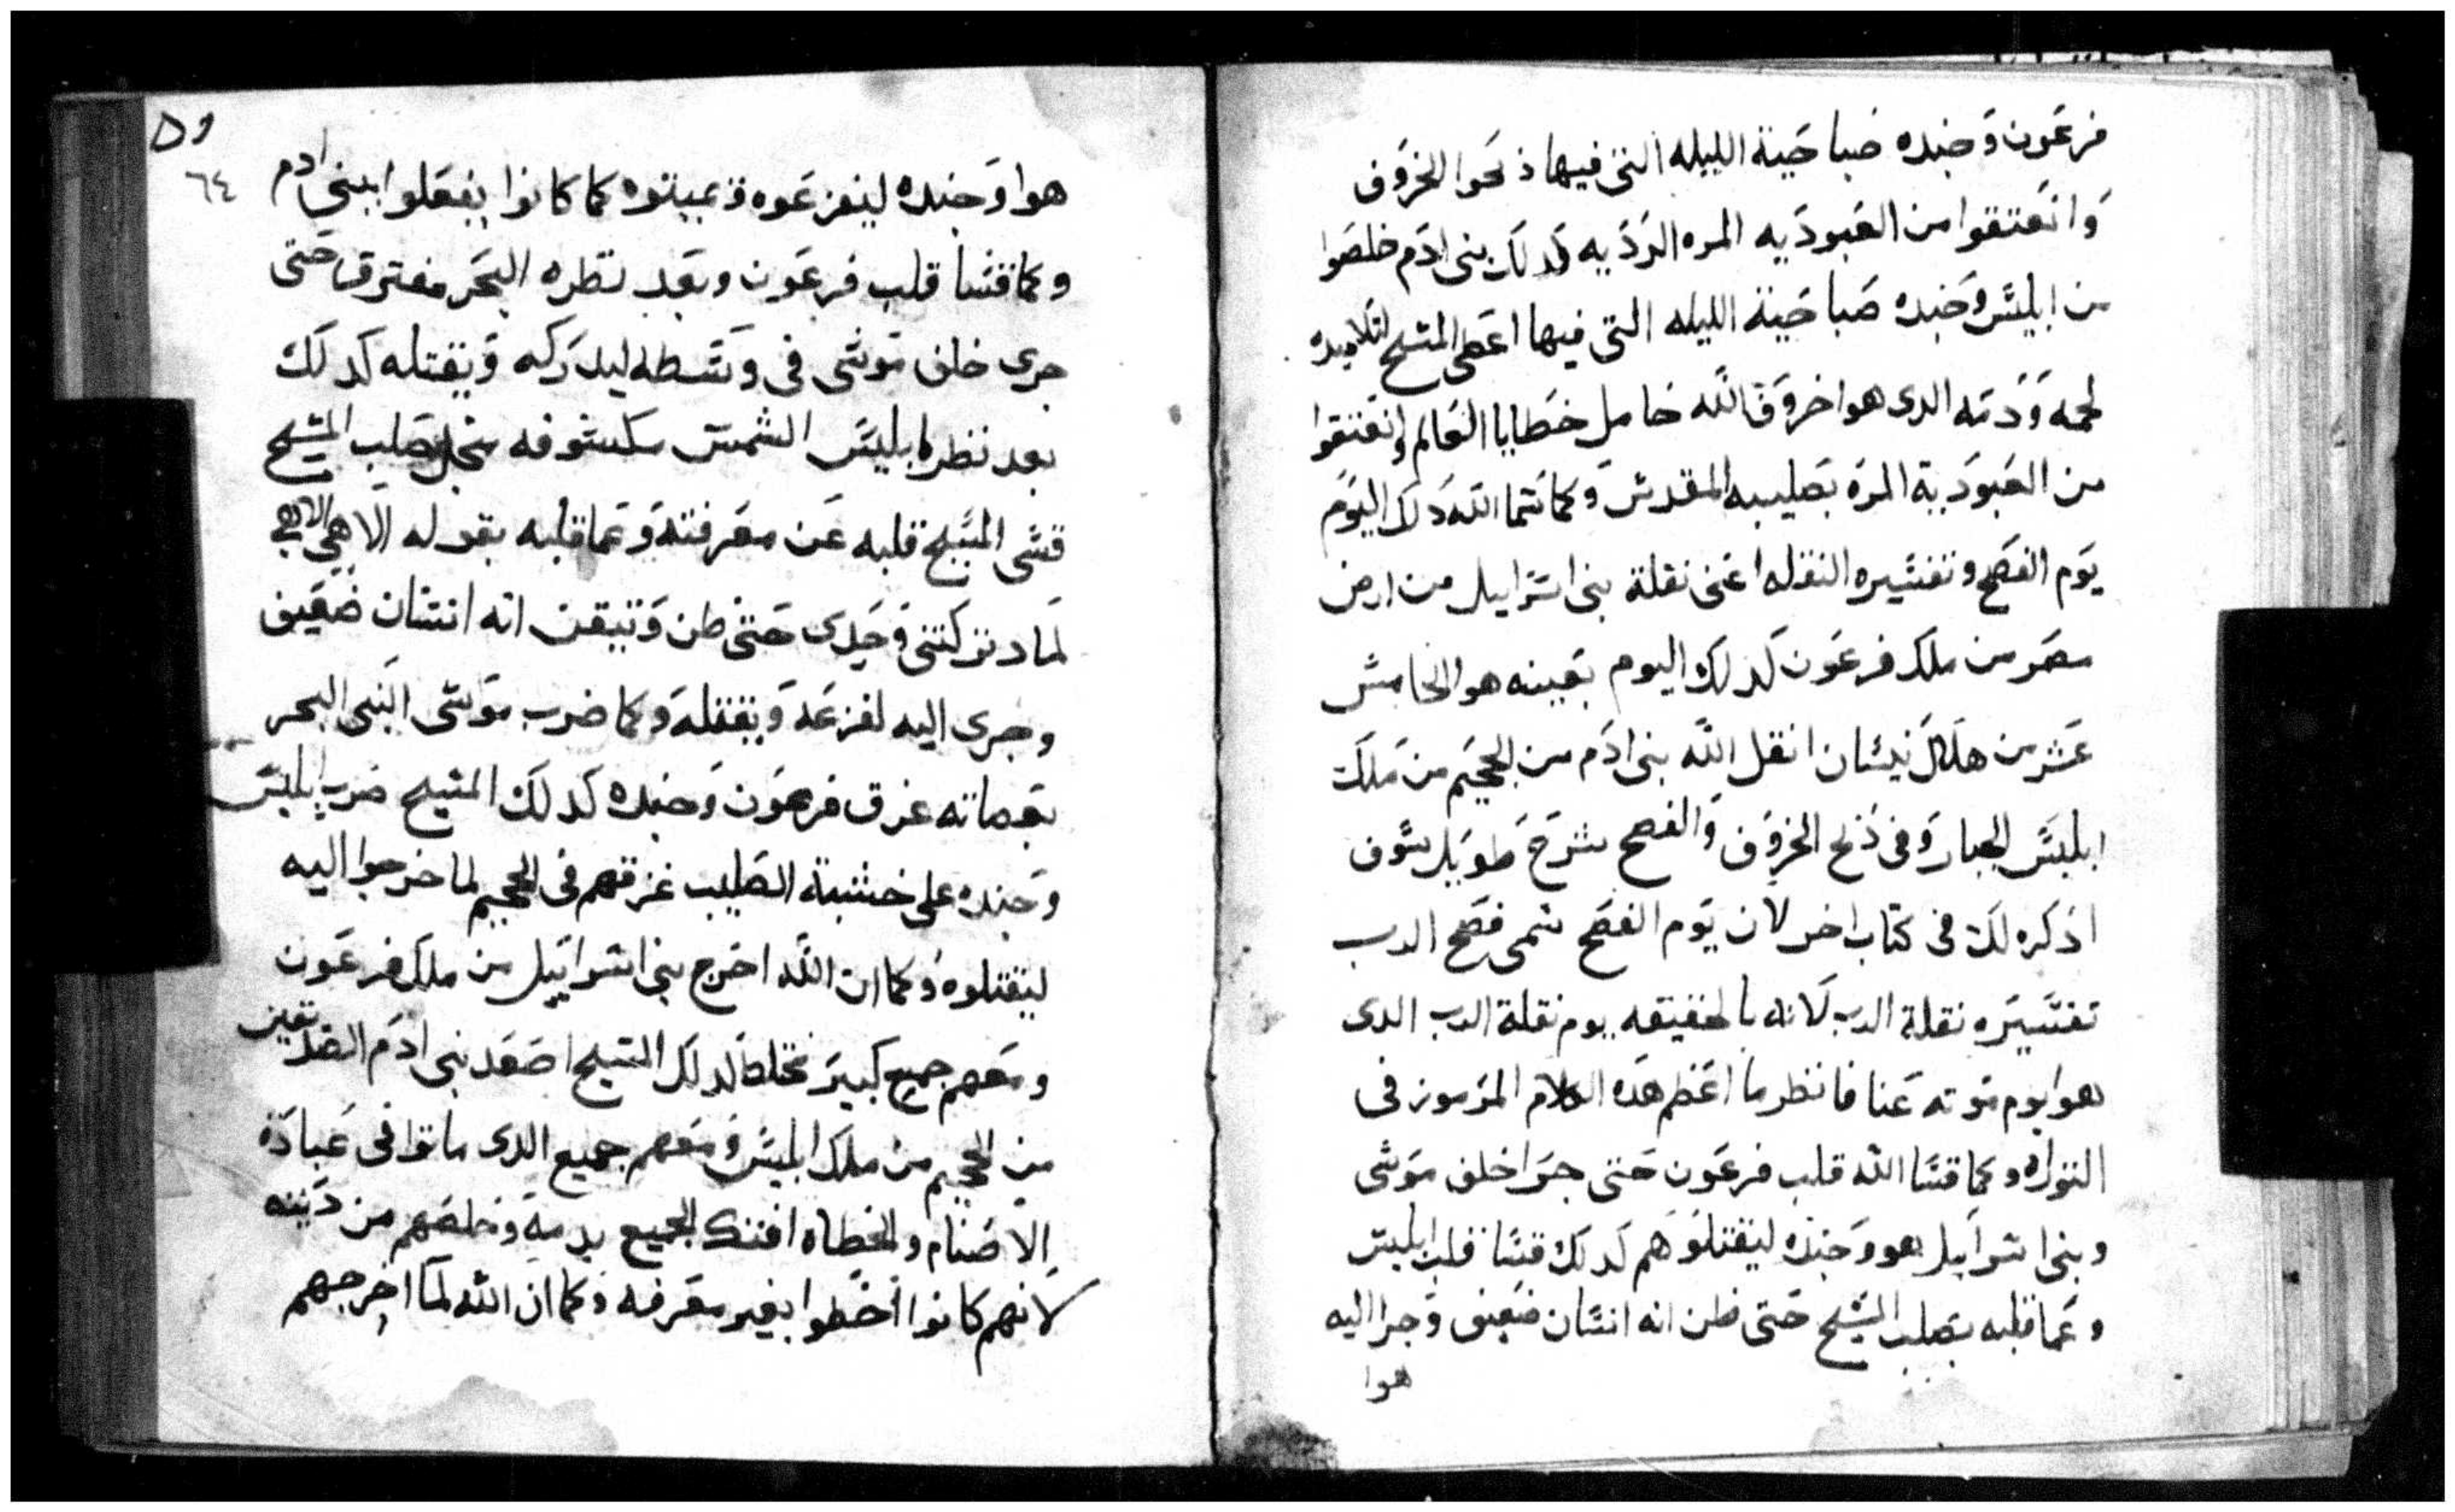 فرعون وجنده صباحية الليله التى فيها ذبحوا الخروف
وانعتقوا من العبوديه المره الرديه كدلك بنى ادم خلصوا
من ابليس وجنده صباحية الليله التى فيها اعطى المسيح لتلاميده
لحمه ودمه الدى هوا خروف الله حامل خطايا العالم وانعتقوا
من العبودية المره بصليبه المقدس وكما سما الله دلك اليوم
يوم الفصح وتفسيره النقله اعنى نقلة بنى اسراييل من ارض
مصر من ملك فرعون كدلك اليوم بعينه هو الخامس
عشر من هلال نيسان انقل الله بنى ادم من الجحيم من ملك
ابليس الجبار وفى ذبح الخروف والفصح شرح طويل سوف
اذكره لك فى كتاب اخر لان يوم الفصح سمى فصح الرب
تفسيره نقلة الرب لانه بالحقيقه يوم نقلة الرب الدى
هوا يوم موته عنا فانظر ما اعظم هده الكلام المرموز فى
التوراه وكما قسا الله قلب فرعون حتى جرا خلف موسى
وبنى اسراييل هو وجنده ليقتلوهم كدلك قسا قلب ابليس
وعما قلبه بصلب المسيح حتى ظن انه انسان ضعيف وجرا اليه
هوا
٥٩
٦٤
هوا وجنده ليفزعوه ويميتوه كما كانوا يفعلوا ببنى ادم
وكما قسا قلب فرعون وبعد نظره البحر مفترق حتى
جرى خلف موسى فى وسطه ليدركه ويقتله كدلك
بعد نظر ابليس الشمس مكسوفه من اجل صلب المسيح
قسى المسيح قلبه عن معرفته وعما قلبه بقوله الاهى الاهى
لمادا تركتنى وحدى حتى ظن وتيقن انه انسان ضعيف
وجرى اليه لفزعه ويقتله وكما ضرب موسى النبى البحر
بعصاته غرق فرعون وجنده كدلك المسيح ضرب ابليس
وجنده على خشبة الصليب غرقهم فى الجحيم لما خرجوا اليه
ليقتلوه وكما ان الله اخرج بنى اسراييل من ملك فرعون
ومعهم جميع كبير مختلط كدلك المسيح اصعد بنى ادم الصديقين
من الجحيم من ملك ابليس ومعهم جميع الدى ماتوا فى عبادة
الاصنام والخطاه افتدك الجميع بدمه وخلصهم من دينه
لانهم كانوا اخطوا بغير معرفه وكما ان الله لما اخرجهم